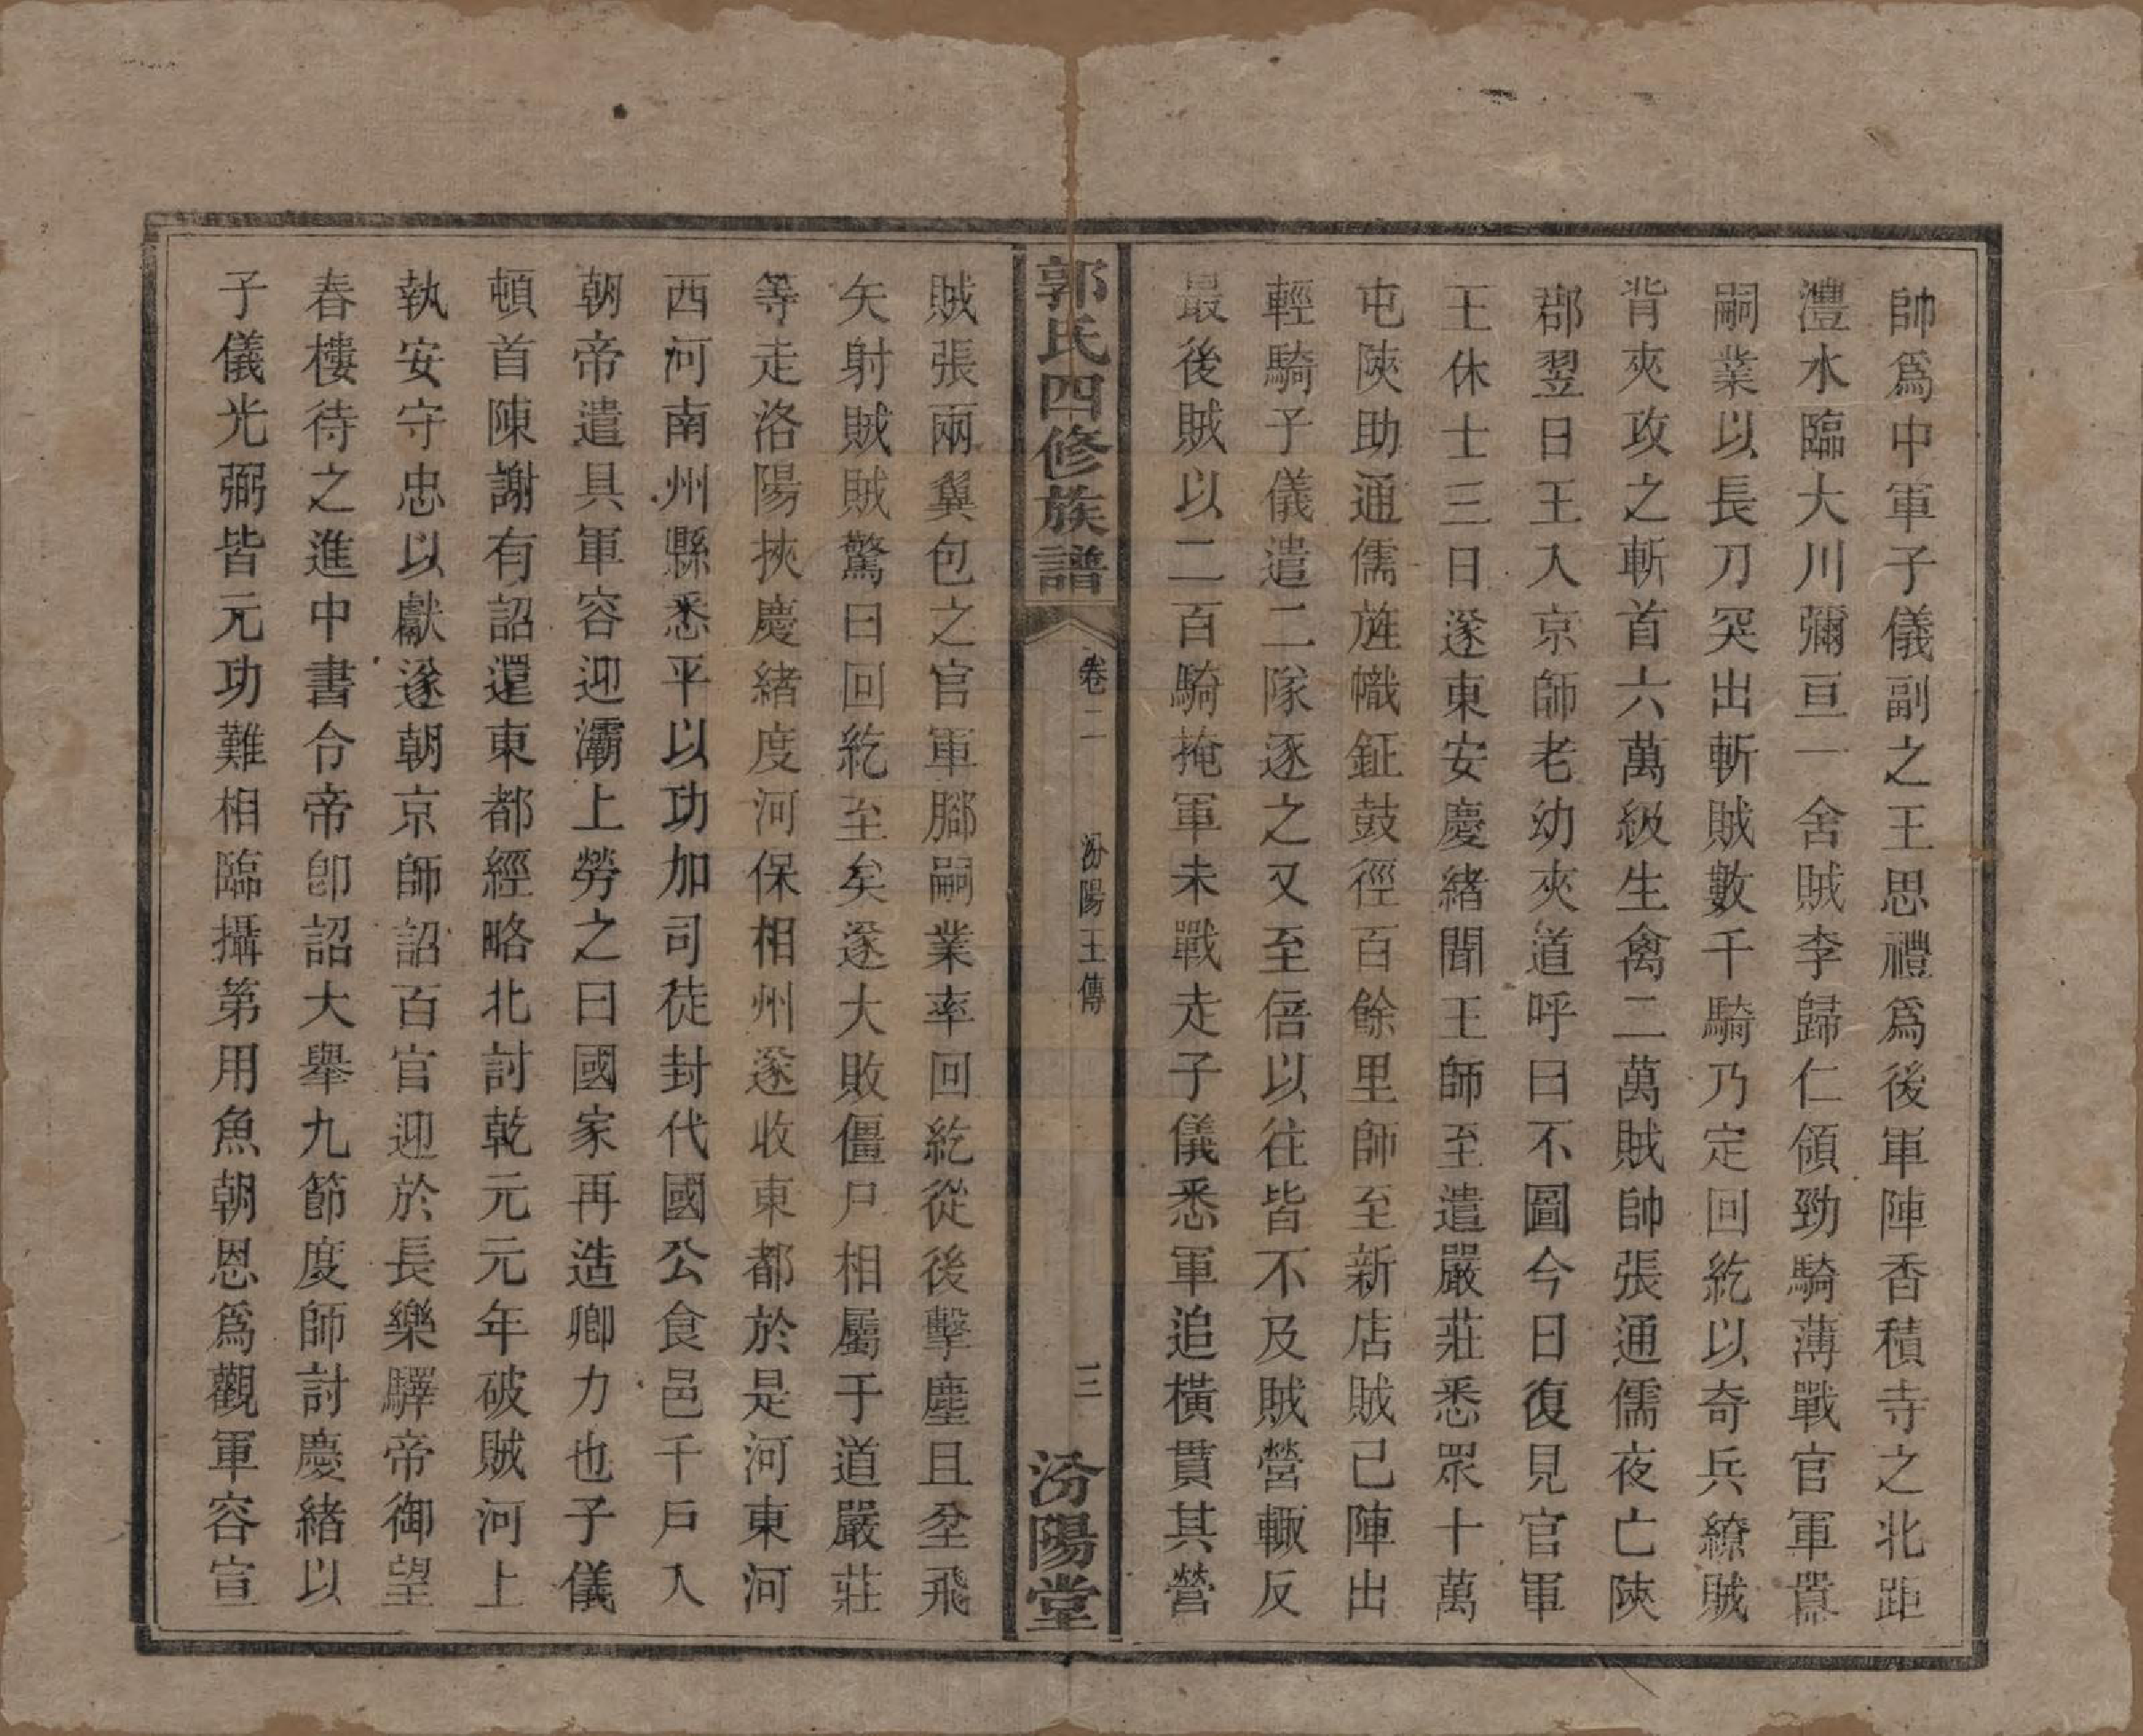 帥爲中軍子儀副之王思禮爲後軍陣香積寺之北距
灃水臨大川彌亘一舍賊李歸仁領勁騎薄戰官軍囂
嗣業以長刀突出斬賊數千騎乃定回紇以奇兵繚賊
背夾攻之斬首六萬級生禽二萬賊帥張通儒夜亡陝
郡翌日王入京師老幼夾道呼曰不圖今日復見官軍
王休士三日遂東安慶緒聞王師至遣嚴莊悉眾十萬
屯陝助通儒旌幟鉦鼓徑百餘里師至新店賊已陣出
輕騎子儀遣二隊逐之又至倍以往皆不及賊營輙反
最後賊以二百騎掩軍未戰走子儀悉軍追橫貫其營
郭氏四修族譜
卷二
汾陽王傳
三
汾陽堂
賊張兩翼包之官軍腳嗣業率回紇從後擊塵且坌飛
矢射賊賊驚曰回紇至矣遂大敗僵尸相屬于道嚴莊
等走洛陽挾慶緒度河保相州遂收東都於是河東河
西河南州縣悉平以功加司徒封代國公食邑千戶入
朝帝遣具軍容迎灞上勞之曰國家再造卿力也子儀
頓首陳謝有詔還東都經略北討乾元元年破賊河上
執安守忠以獻遂朝京師詔百官迎於長樂驛帝御望
春樓待之進中書令帝卽詔大舉九節度師討慶緒以
子儀光弼皆元功難相臨攝第用魚朝恩爲觀軍容宣